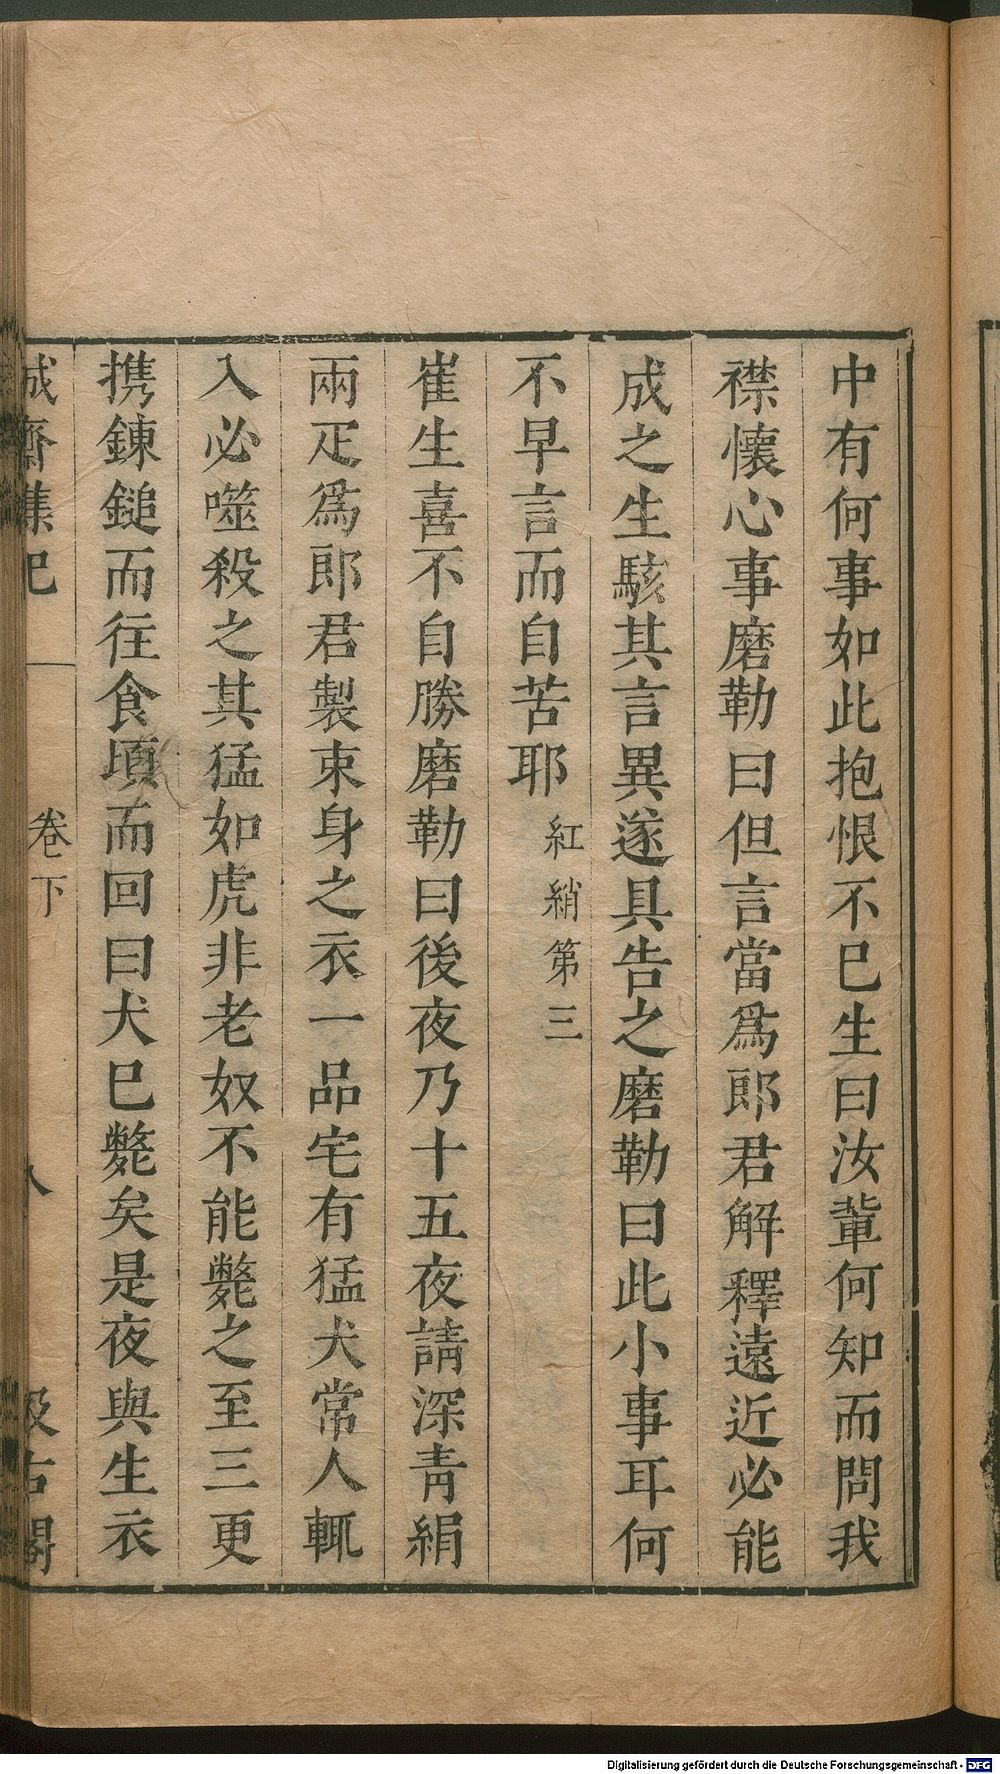 中有何事如此抱恨不巳生曰汝輩何知而問我
襟懷心事磨勒曰但言當爲郎君解釋遠近必能
成之生駭其言異遂具告之磨勒曰此小事耳何
不早言而自苦耶 紅綃第三
崔生喜不自勝磨勒曰後夜乃十五夜請深青絹
兩疋爲郎君製束身之衣一品宅有猛犬常人輒
入必噬殺之其猛如虎非老奴不能斃之至三更
携鍊鎚而往食頃而回曰犬巳斃矣是夜與生衣
誠齋集記 卷下 八 汲古閣
Digitalisierung gefördert durch die Deutsche Forschungsgemeinschaft - DFG